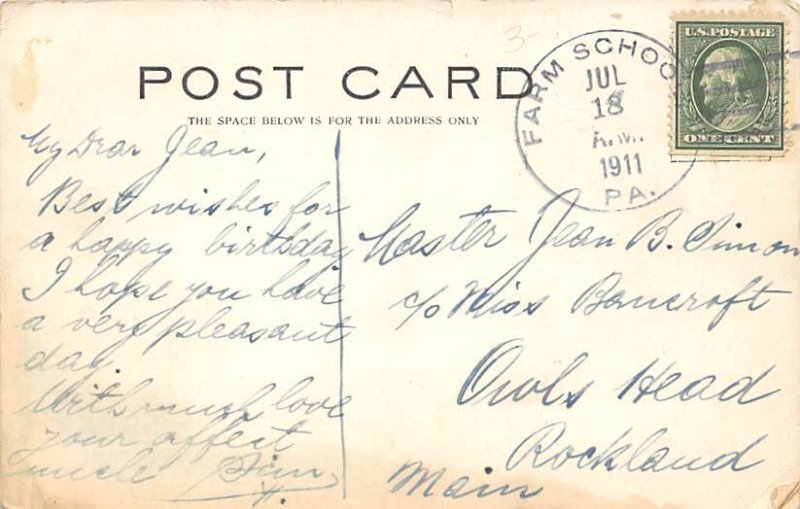 POST CARD
THE SPACE BELOW IS FOR THE ADDRESS ONLY
FARM SCHOO
JUL
18
A.M.
1911
PA.
U.S. POSTAGE
ONE CENT
My Dear Jean,
Best wishes for
a happy birtsday
I hope you have
a very pleasant
day.
With much love
your affect
uncle
Master Jean B. Simon
c/o Miss Bancroft
Owls Head
Rockland
Main